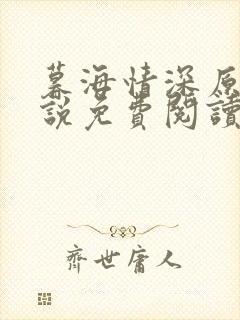 慕海情深原
說免費閱讀
齊世庸人